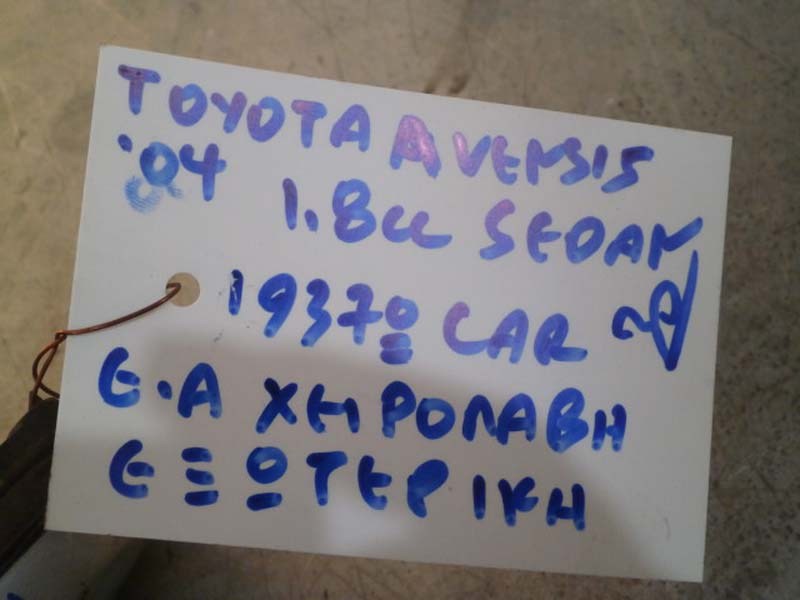 TOYOTA AVENSIS
'04 1.8cc SEDAN
1937º CAR
Ε.Α ΧΗΡΟΛΑΒΗ
ΕΞΩΤΕΡΙΚΗ